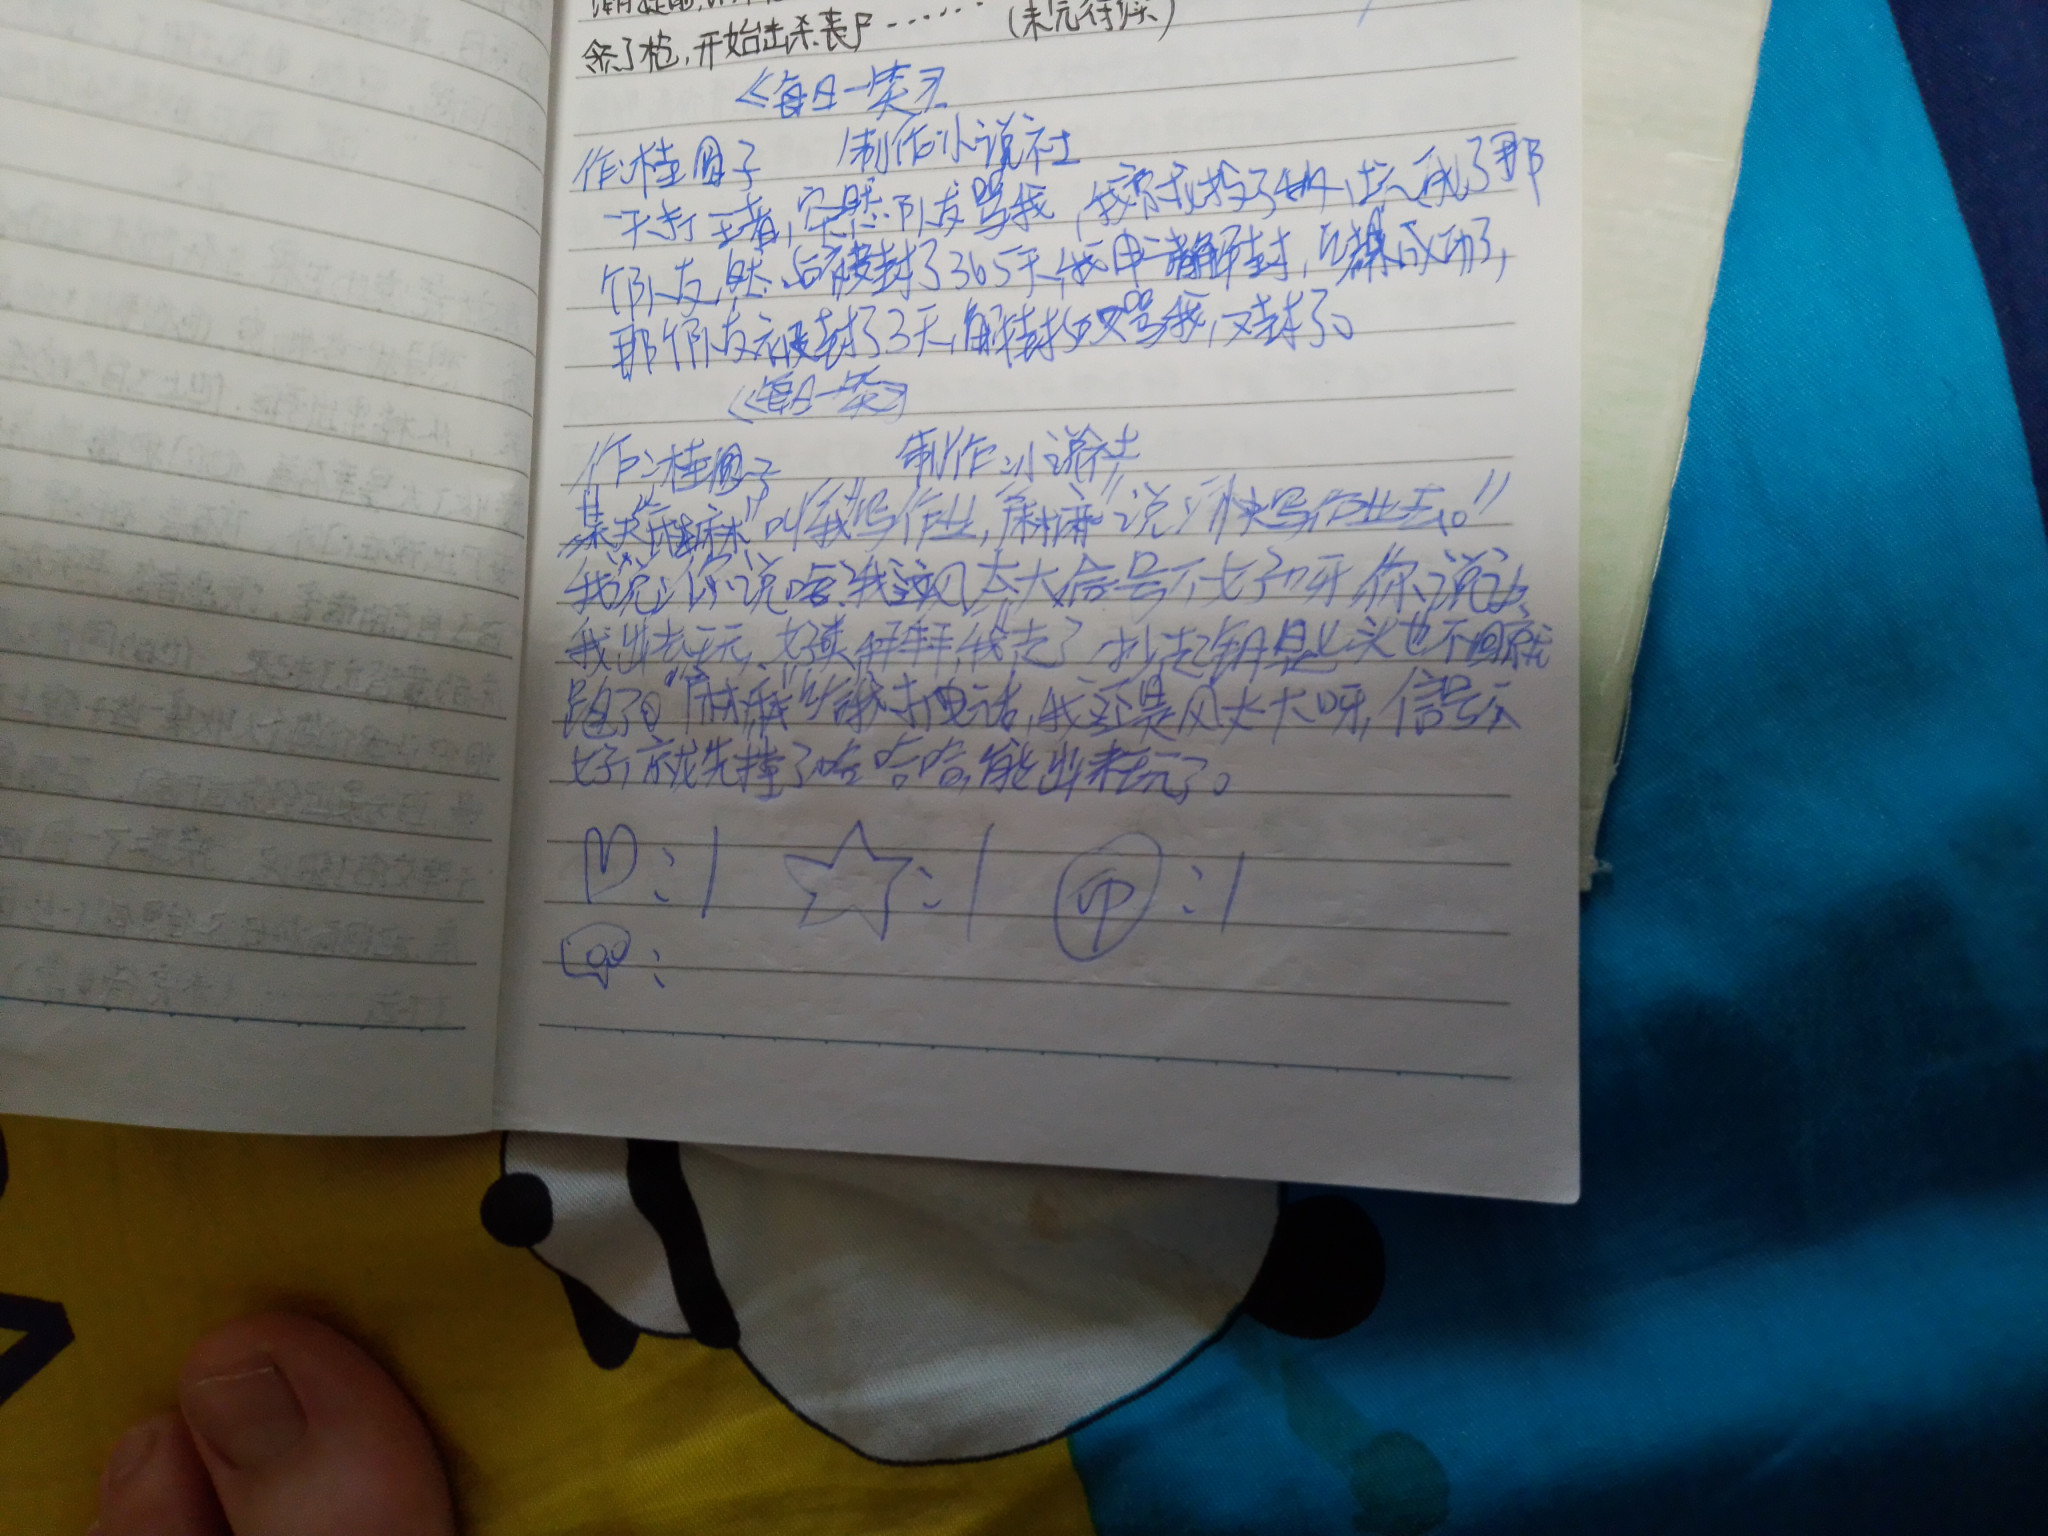 领了枪，开始击杀丧尸……（未完待续）
《每日一笑》
作：桂圆子 制作：小说社
一天打王者，突然队友骂我，我就投了 了那
个队友，然后被封了365天，我申请解封，成功了，
那个队友被封了3天，解封后又骂我，又封了。
《每日一笑》
作：桂圆子 制作：小说社
某天"麻麻"叫我写作业，"麻麻"说："快写作业去。"
我说："你说啥？我这风太大信号不好呀你说让
我出去玩，好滴拜拜，我走了"抄起钥匙头也不回就
跑了。"麻麻"给我打电话，我还是风太大呀，信号不
好，就先撑了哈哈哈，能出来玩了。
：1 ：1 币：1
：